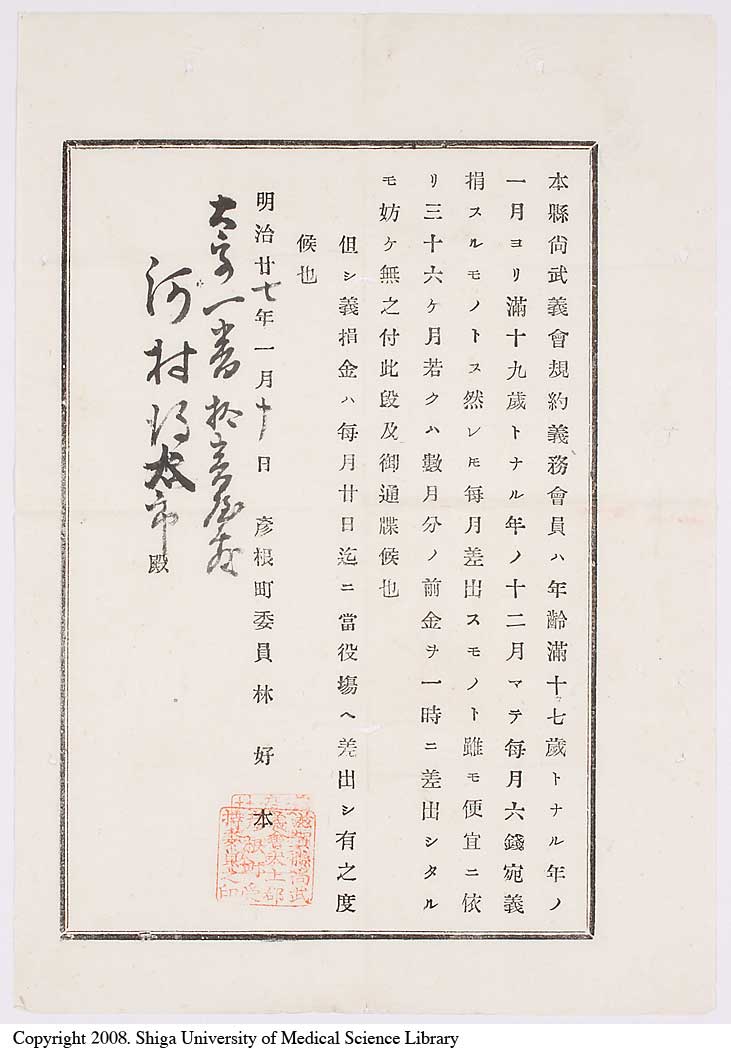 本縣尙武義會規約義務會員ハ年齡滿十七歲トナル年ノ
一月ヨリ滿十九歲トナル年ノ十二月マテ每月六錢宛義
捐スルモノトス然レ𪜈每月差出スモノト雖モ便宜ニ依
リ三十六ケ月若クハ數月分ノ前金ヲ一時ニ差出シタル
モ妨ケ無之付此段及御通牒候也
但シ義捐金ハ每月廿日迄ニ當役塲ヘ差出シ有之度
候也
明治廿七年一月十日 彥根町委員 林好本
河村 太市殿
滋賀縣尙武
義會犬上郡
彥根町受
持委員之印
Copyright 2008. Shiga University of Medical Science Library